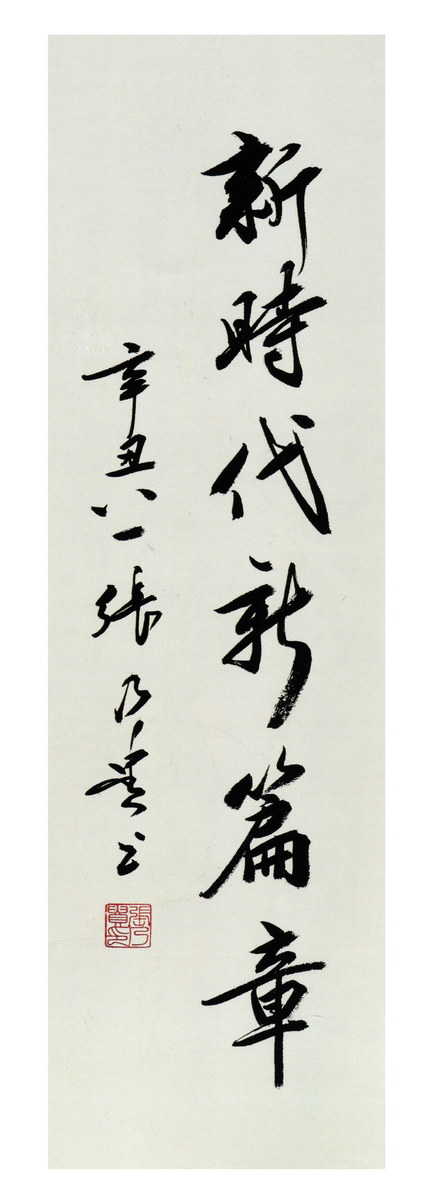 新時代新篇章
辛丑八一張乃賢书